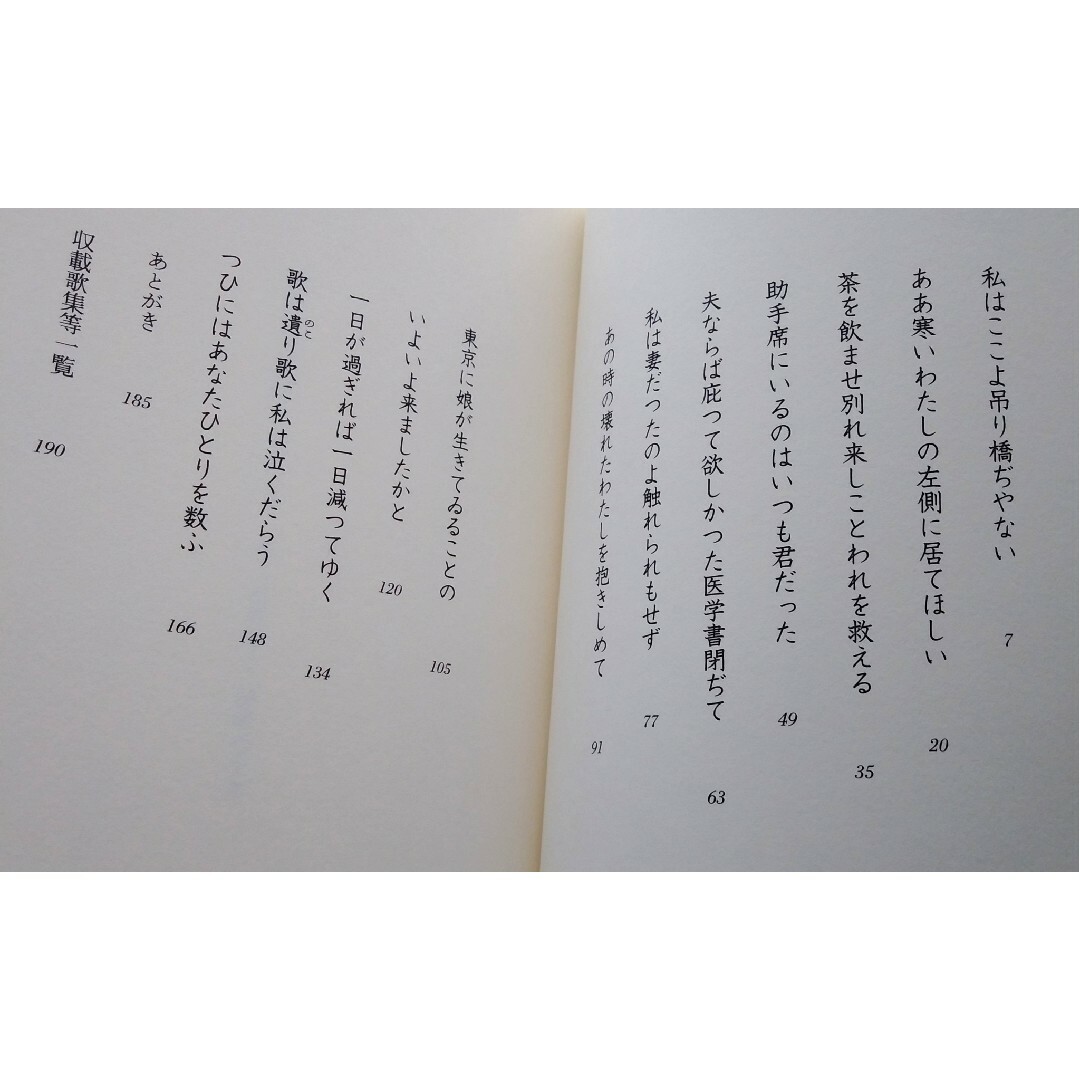 私はここよ吊り橋ぢやない 7
ああ寒いわたしの左側に居てほしい 20
茶を飲ませ別れ来しことわれを救える 35
助手席にいるのはいつも君だった 49
夫ならば庇つて欲しかつた医学書閉ぢて 63
私は妻だつたのよ触れられもせず 77
あの時の壊れたわたしを抱きしめて 91
東京に娘が生きてゐることの 105
いよいよ来ましたかと 120
一日が過ぎれば一日減つてゆく 134
歌は遺り歌に私は泣くだらう 148
のこ
つひにはあなたひとりを数ふ 166
あとがき 185
収載歌集等一覧 190